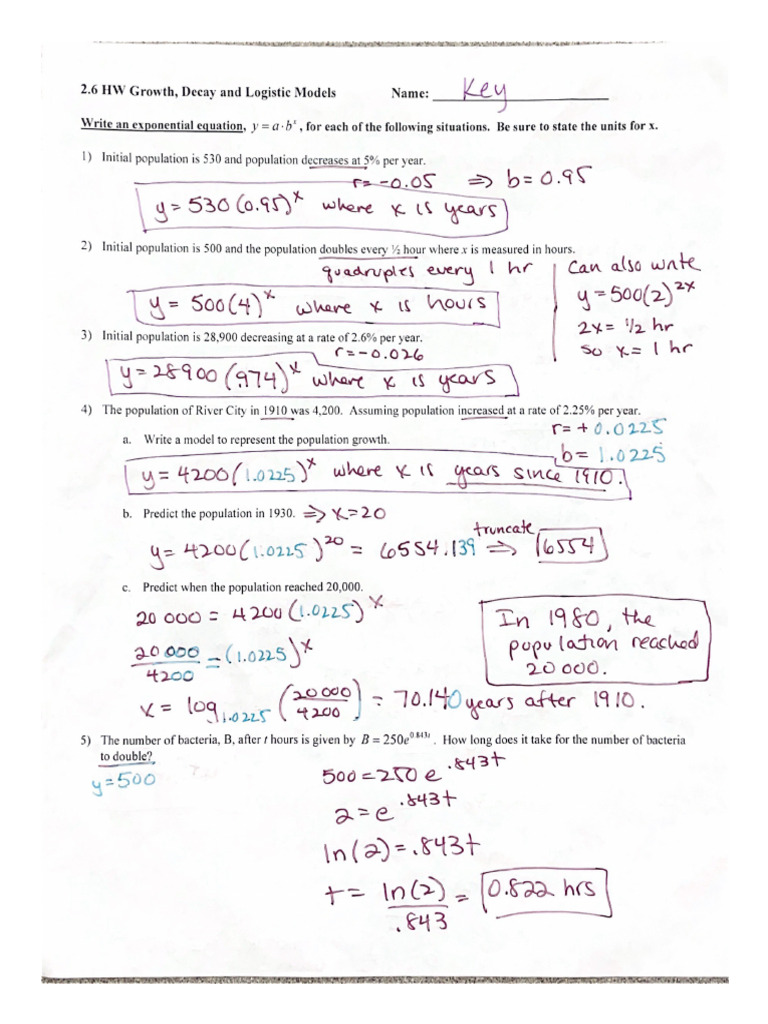 2.6 HW Growth, Decay and Logistic Models Name: Key
Write an exponential equation, y = a·b^x, for each of the following situations. Be sure to state the units for x.
1) Initial population is 530 and population decreases at 5% per year.
r = -0.05 ⇒ b = 0.95
y = 530(0.95)^x where x is years
2) Initial population is 500 and the population doubles every ½ hour where x is measured in hours.
quadruples every 1 hr
y = 500(4)^x where x is hours
Can also write
y = 500(2)^2x
2x = 1/2 hr
so x = 1 hr
3) Initial population is 28,900 decreasing at a rate of 2.6% per year.
r = -0.026
y = 28900(.974)^x where x is years
4) The population of River City in 1910 was 4,200. Assuming population increased at a rate of 2.25% per year.
r = +0.0225
a. Write a model to represent the population growth.
b = 1.0225
y = 4200(1.0225)^x where x is years since 1910.
b. Predict the population in 1930. ⇒ x = 20
y = 4200(1.0225)^20 = 6554.139 truncate ⇒ 6554
c. Predict when the population reached 20,000.
20 000 = 4200(1.0225)^x
20 000/4200 = (1.0225)^x
x = log_1.0225 (20 000/4200) = 70.140 years after 1910.
In 1980, the
population reached
20 000.
5) The number of bacteria, B, after t hours is given by B = 250e^0.843t. How long does it take for the number of bacteria
to double?
y = 500
500 = 250 e^.843t
2 = e^.843t
ln(2) = .843t
t = ln(2)/.843 = 0.822 hrs